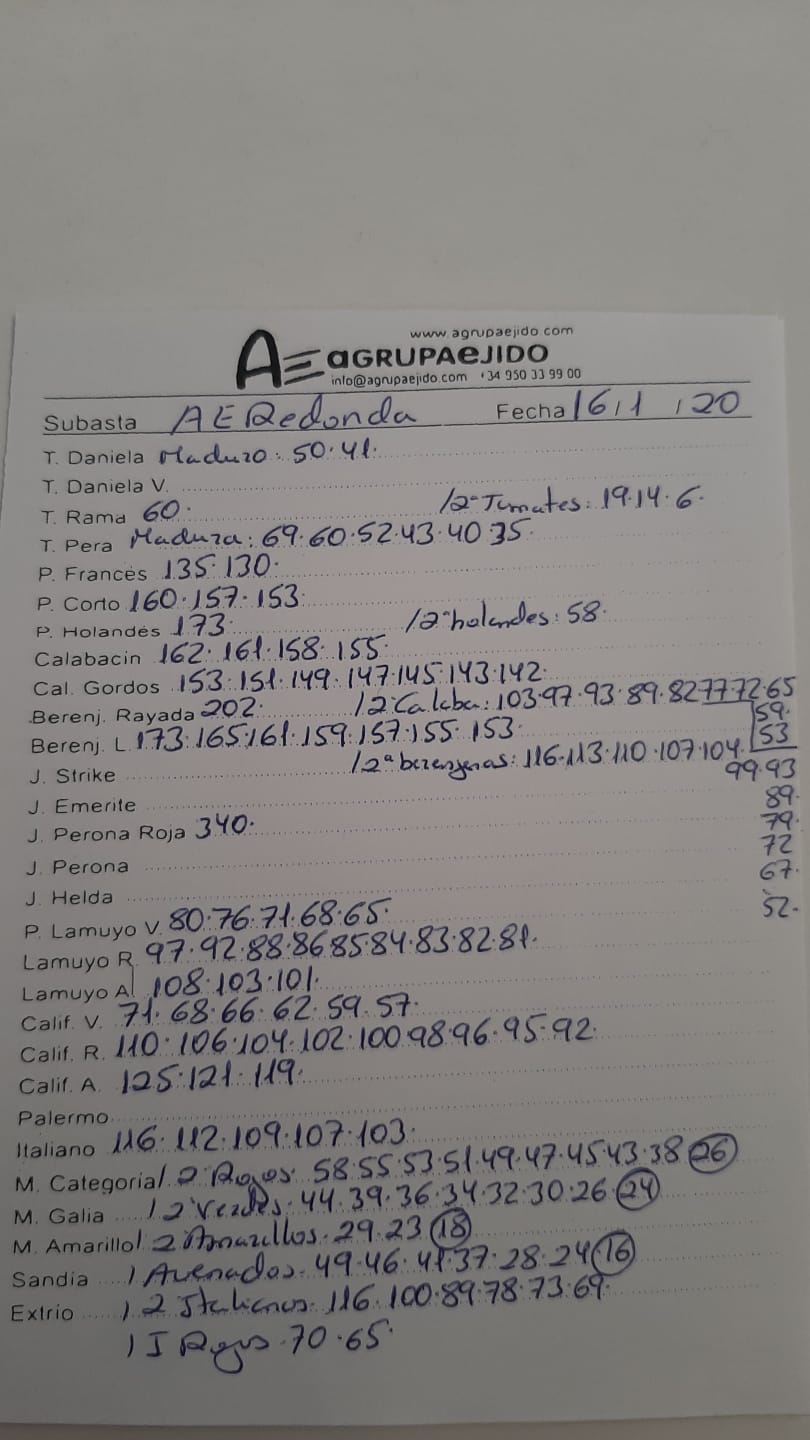 www.agrupaejido.com
AE aGRUPAeJIDO
info@agrupaejido.com +34 950 33 99 00
Subasta AE Redonda Fecha 16/1/20
T. Daniela Maduro: 50.41.
T. Daniela V.
T. Rama 60. /2ª Tomates: 19.14.6.
T. Pera Madura: 69.60.52.43.40.35.
P. Francés 135.130.
P. Corto 160.157.153.
P. Holandés 173. /2ª holandes: 58.
Calabacin 162.161.158.155.
Cal. Gordos 153.151.149.147.145.143.142.
Berenj. Rayada 202. /2 Calaba: 103.97.93.89.82.77.72.65
59.
Berenj. L. 173.165.161.159.157.155.153. 53
J. Strike /2ª berenjenas: 116.113.110.107.104.
99.93
J. Emerite 89.
J. Perona Roja 340. 79.
72
J. Perona 67.
J. Helda 52.
P. Lamuyo V. 80.76.71.68.65.
Lamuyo R. 97.92.88.86.85.84.83.82.81.
Lamuyo A 108.103.101.
Calif. V. 71.68.66.62.59.57.
Calif. R. 110.106.104.102.100.98.96.95.92.
Calif. A. 125.121.119.
Palermo
Italiano 116.112.109.107.103.
M. Categoria /2 Rojos 58.55.53.51.49.47.45.43.38 26
M. Galia /2 Verdes. 44.39.36.34.32.30.26. 24
M. Amarillo /2 Amarillos. 29.23 18
Sandia / Avenados. 49.46.41.37.28.24 16
Extrio /2 Italianos. 116.100.89.78.73.69.
/ I Rojos. 70.65.